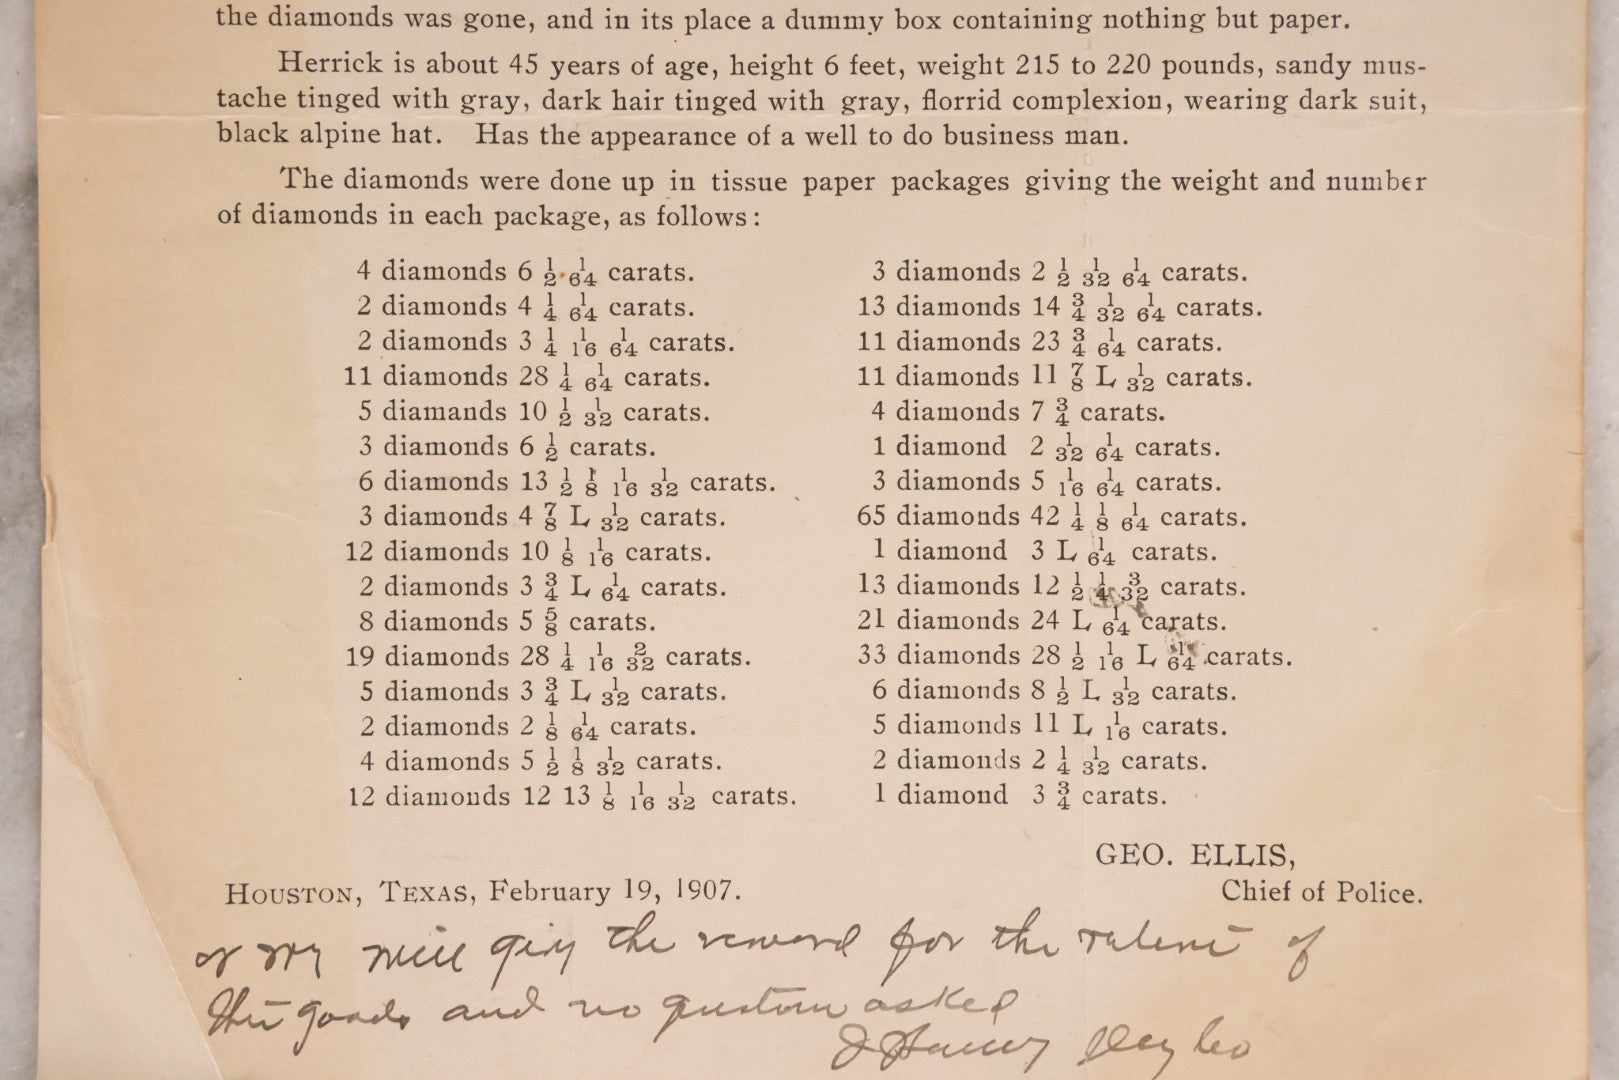 the diamonds was gone, and in its place a dummy box containing nothing but paper.
Herrick is about 45 years of age, height 6 feet, weight 215 to 220 pounds, sandy mus-
tache tinged with gray, dark hair tinged with gray, florrid complexion, wearing dark suit,
black alpine hat. Has the appearance of a well to do business man.
The diamonds were done up in tissue paper packages giving the weight and number
of diamonds in each package, as follows:
4 diamonds 6 1/2 1/64 carats.
2 diamonds 4 1/4 1/64 carats.
2 diamonds 3 1/4 1/16 1/64 carats.
11 diamonds 28 1/4 1/64 carats.
5 diamands 10 1/2 1/32 carats.
3 diamonds 6 1/2 carats.
6 diamonds 13 1/2 1/8 1/16 1/32 carats.
3 diamonds 4 7/8 L 1/32 carats.
12 diamonds 10 1/8 1/16 carats.
2 diamonds 3 3/4 L 1/64 carats.
8 diamonds 5 5/8 carats.
19 diamonds 28 1/4 1/16 2/32 carats.
5 diamonds 3 3/4 L 1/32 carats.
2 diamonds 2 1/8 1/64 carats.
4 diamonds 5 1/2 1/8 1/32 carats.
12 diamonds 12 13 1/8 1/16 1/32 carats.
3 diamonds 2 1/2 1/32 1/64 carats.
13 diamonds 14 3/4 1/32 1/64 carats.
11 diamonds 23 3/4 1/64 carats.
11 diamonds 11 7/8 L 1/32 carats.
4 diamonds 7 3/4 carats.
1 diamond 2 1/32 1/64 carats.
3 diamonds 5 1/16 1/64 carats.
65 diamonds 42 1/4 1/8 1/64 carats.
1 diamond 3 L 1/64 carats.
13 diamonds 12 1/2 1/4 3/32 carats.
21 diamonds 24 L 1/64 carats.
33 diamonds 28 1/2 1/16 L 1/64 carats.
6 diamonds 8 1/2 L 1/32 carats.
5 diamonds 11 L 1/16 carats.
2 diamonds 2 1/4 1/32 carats.
1 diamond 3 3/4 carats.
GEO. ELLIS,
HOUSTON, TEXAS, February 19, 1907.
Chief of Police.
will give the reward for the return of
goods and no question asked